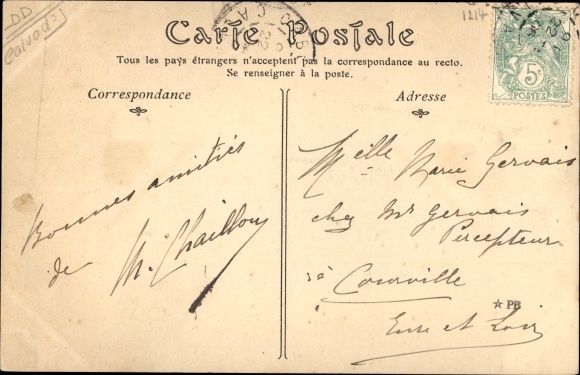 DD
Calvados
1214
Carte Postale
Tous les pays étrangers n'acceptent pas la correspondance au recto.
Se renseigner à la poste.
Correspondance
Adresse
5c
POSTES
Bonnes amitiés
de M. Chaillou
Melle Marie Gervais
chez Mr Gervais
Percepteur
à Courville
Eure et Loir
PB